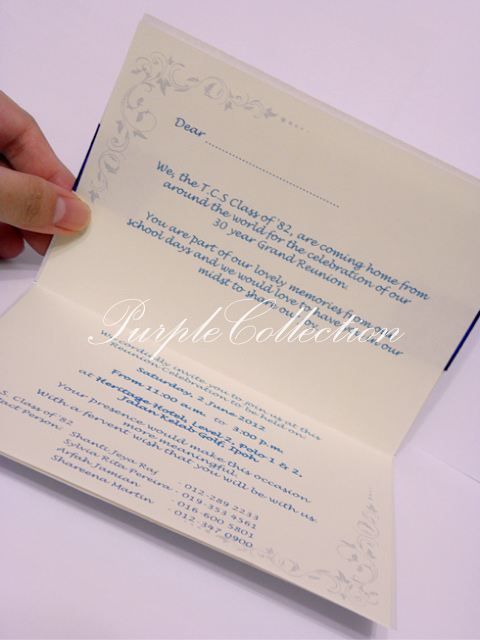 Dear ........................................
We, the T.C.S Class of '82, are coming home from
around the world for the celebration of our
30 year Grand Reunion.
You are part of our lovely memories from our
school days and we would love to have you in our
midst to share our joy
PurpleCollection
We cordially invite you to join us at this
Reunion Celebration to be held on
Saturday, 2 June 2012
From 11:00 a.m. to 3:00 p.m.
at Heritage Hotel, Level 2, Polo 1 & 2,
Jalan Kelab Golf, Ipoh
Your presence would make this occasion
more meaningful
With a fervent wish that you will be with us.
S. Class of '82
tact Person:
Shanti Jeya Raj - 012-289 2233
Sylvia Rita Pereira - 019-353 4561
Arfah Jamian - 016-600 5801
Shareena Martin - 012-347 0900